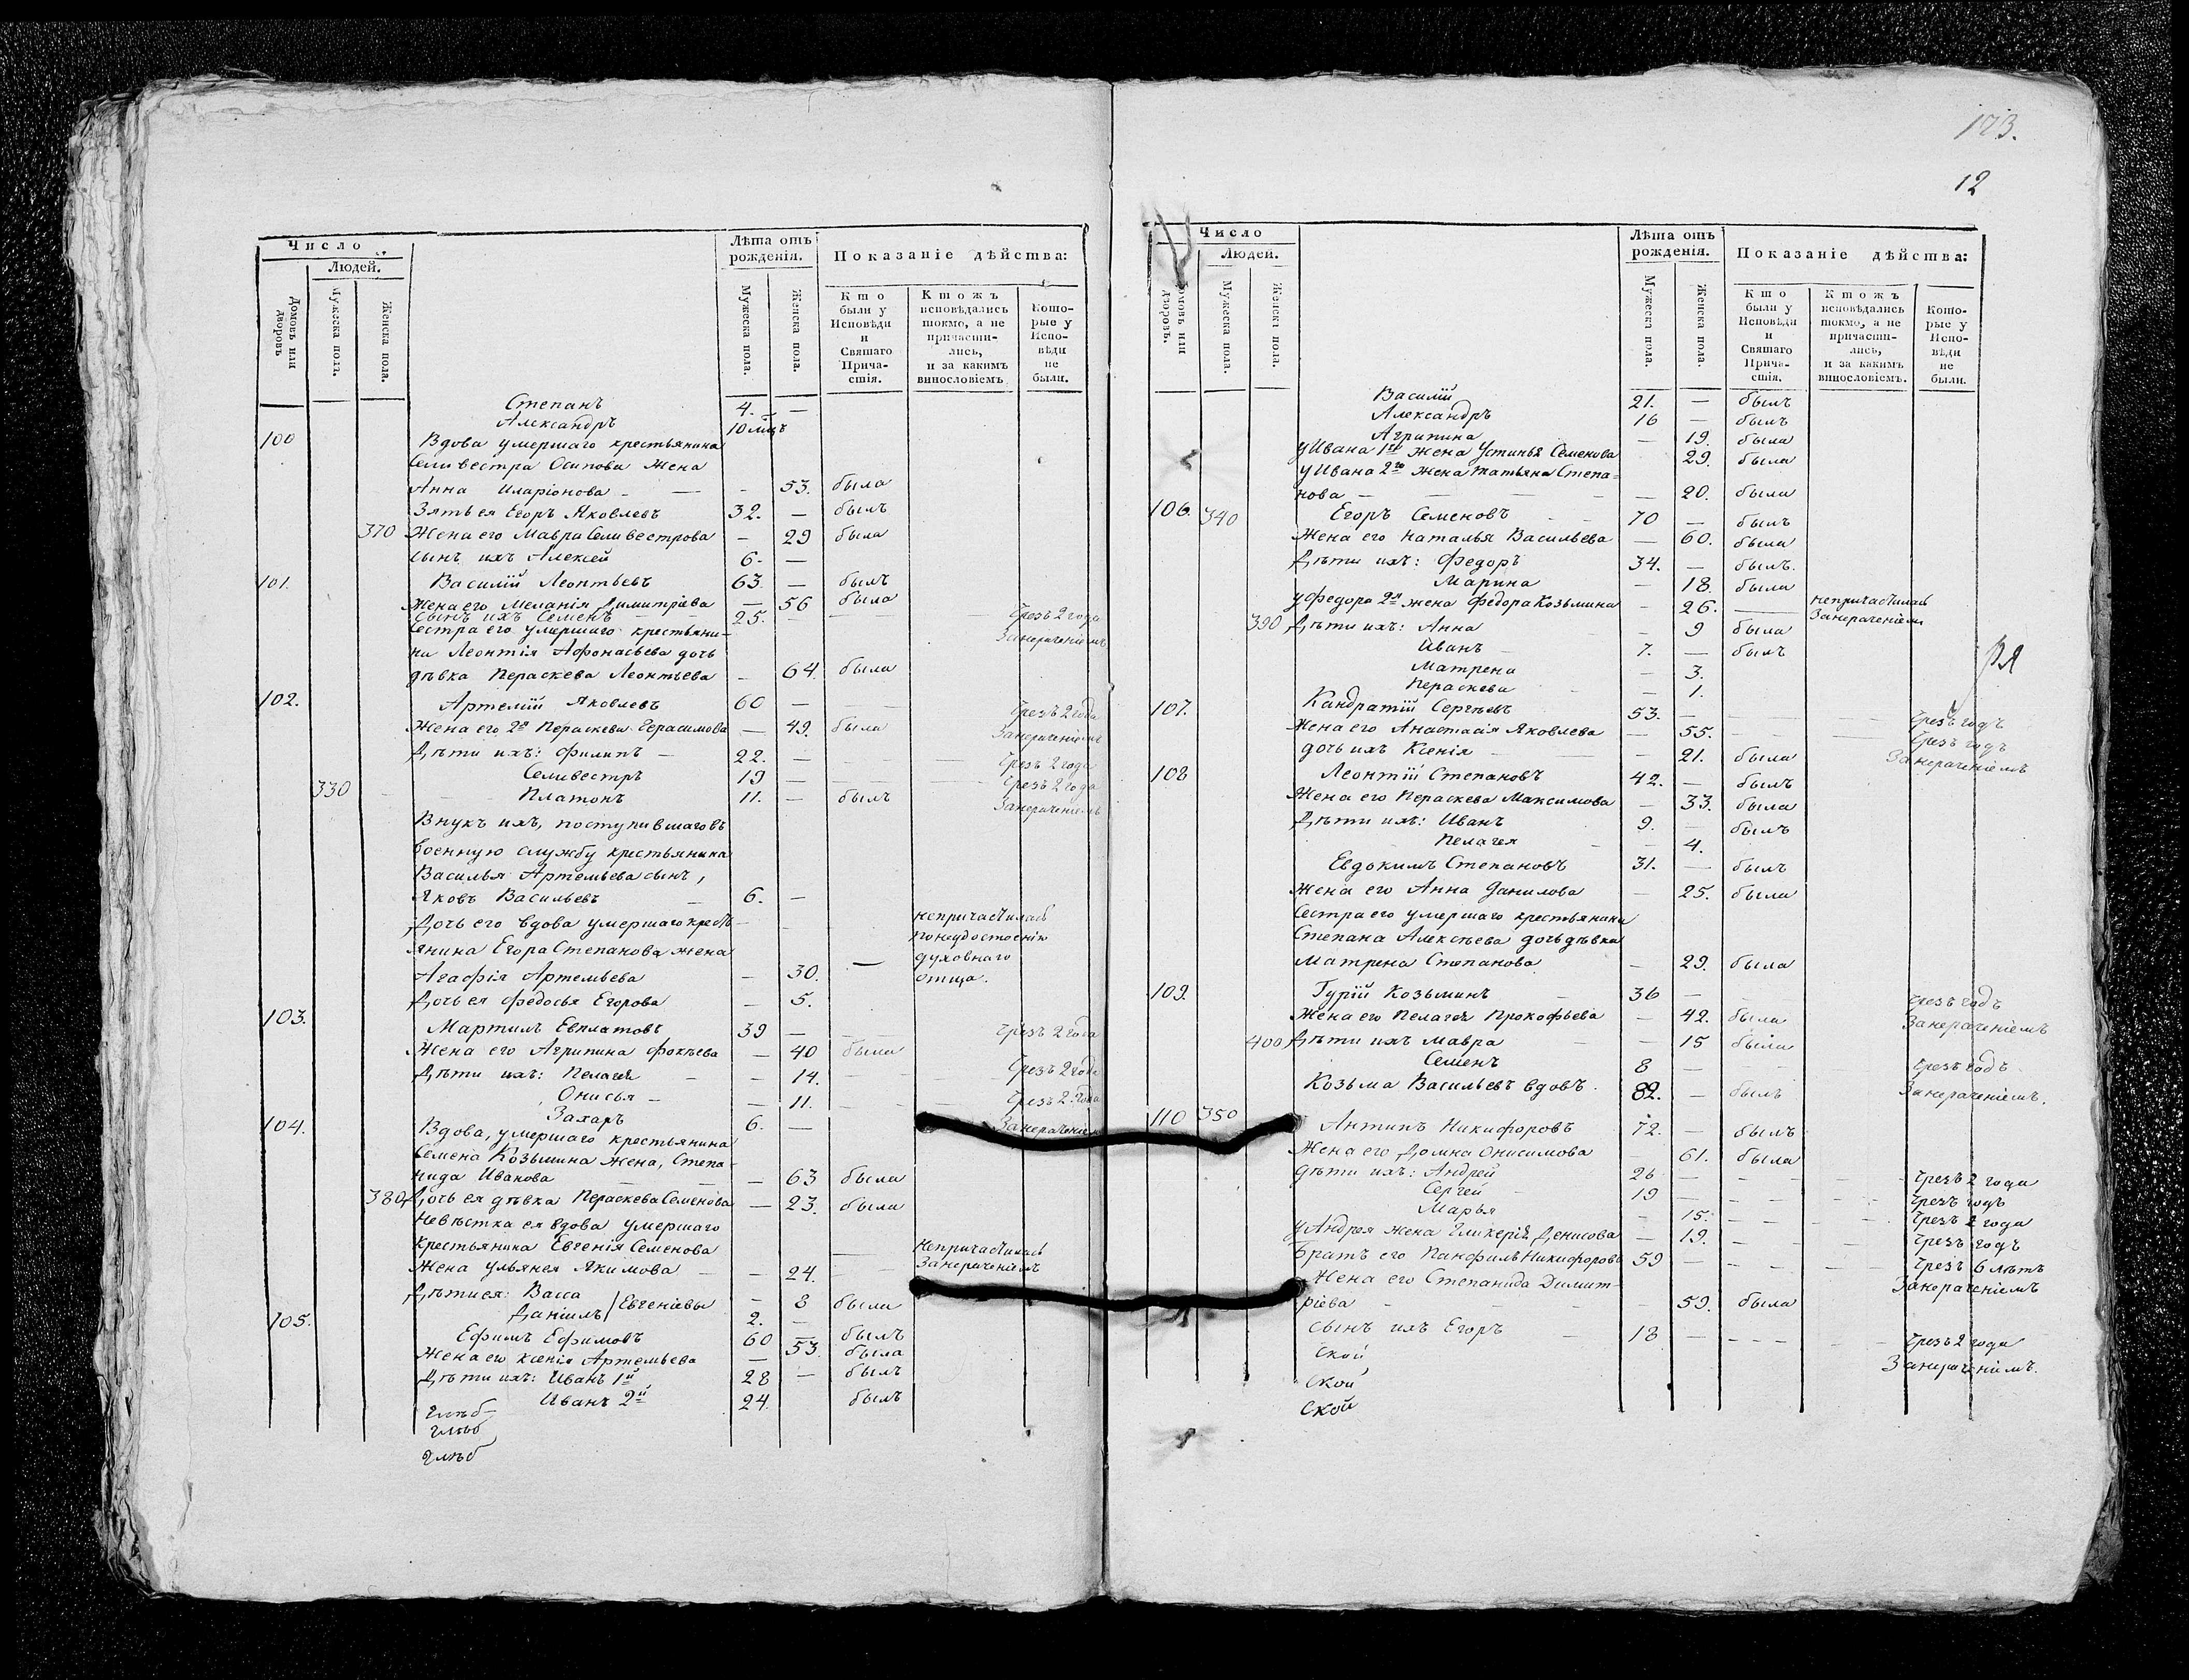 Число
Людей.
Домовъ или дворовъ
Мужеска пола.
Женска пола.
Лѣта отъ рожденія.
Мужеска пола.
Женска пола.
Показаніе дѣйства:
Кто были у Исповѣди и Святаго Прича- стія.
Ктожъ исповѣдались токмо, а не причасти- лись, и за какимъ винословіемъ.
Кото- рые у Испо- вѣди не были.
Степанъ 4. —
Александръ 10 —
100 Вдова умершаго крестьянина
Селивестра Осипова жена
Анна Иларіонова - — - 53. была
Зять ея Егоръ Яковлевъ 32. — былъ
370 Жена его Мавра Селивестрова — 29 была
сынъ ихъ Алексей 6. —
101. Василій Леонтьевъ 63 — былъ
Жена его Меланія Димитріева — 56 была
Сынъ ихъ Семенъ 25. — — чрезъ 2 года
Сестра его умершаго крестьяни- Занераченіемъ
на Леонтія Афонасьева дочь
дѣвка Пераскева Леонтьева — 64. была
102. Артемій Яковлевъ 60 — — чрезъ 2 года
Жена его 2я Пераскева Герасимова — 49. была Занераченіемъ
Дѣти ихъ: Филипъ — 22. — — чрезъ 2 года
Селивестръ 19 — — чрезъ 2 года
330 Платонъ 11. — былъ Занераченіемъ
Внукъ ихъ, поступившаго въ
военную службу крестьянина
Василья Артемьева сынъ,
Яковъ Васильевъ 6. —
Дочь его вдова умершаго кресть- непричастилась
янина Егора Степанова жена понеудостоенію
духовнаго
Агафія Артемьева — 30. — отца.
Дочь ея Федосья Егорова — 5.
103. Мартинъ Евплатовъ 39 — чрезъ 2 года
Жена его Агрипина Фокѣева — 40 была
Дѣти ихъ: Пелагея — 14. — чрезъ 2 года
Онисья — — 11. — чрезъ 2 года
Захаръ 6. — Занераченіемъ
104. Вдова, умершаго крестьянина
Семена Козьмина жена, Степа-
нида Иванова — 63 была
380 Дочь ея дѣвка Пераскева Семенова — 23. была
Невѣстка ея вдова умершаго
крестьянина Евгенія Семенова — Непричастилась
жена Ульянея Якимова — — 24. Занераченіемъ
Дѣти ея: Васса — 8 была
Даніилъ / Евгеніевы 2. —
105. Ефимъ Ефимовъ 60 — былъ
Жена его Ксенія Артемьева — 53 была
Дѣти ихъ: Иванъ 1й 28 — былъ
Иванъ 2й 24. былъ
Глѣб-
Глѣб
Глѣб
123.
12
Число
Людей.
Домовъ или дворовъ.
Мужеска пола.
Женска пола.
Лѣта отъ рожденія.
Мужеска пола.
Женска пола.
Показаніе дѣйства:
Кто были у Исповѣди и Святаго Прича- стія.
Ктожъ исповѣдались токмо, а не причасти- лись, и за какимъ винословіемъ.
Кото- рые у Испо- вѣди не были.
Василій 21. — былъ
Александръ 16 — былъ
Агрипина — 19. была
у Ивана 1го жена Устинья Семенова 29. была
у Ивана 2го жена Татьяна Степа-
нова — — — 20. была
106. 340 Егоръ Семеновъ 70 — былъ
Жена его Наталья Васильева — 60. была
Дѣти ихъ: Федоръ 34. — былъ.
Марина — 18. была
у Федора 2я жена Федора Козьмина — 26. — непричастилась
390 Дѣти ихъ: Анна — 9 была Занераченіемъ
Иванъ 7. — былъ
Матрена — 3.
Пераскева — 1.
ря
107. Кандратій Сергѣевъ 53. — — чрезъ годъ
Жена его Анастасія Яковлева — 55. — чрезъ годъ
дочь ихъ Ксенія — 21. была Занераченіемъ
108 Леонтій Степановъ 42. — былъ
Жена его Пераскева Максимова — 33. была
Дѣти ихъ: Иванъ 9. — былъ
Пелагея — 4.
Евдокимъ Степановъ 31. — былъ
Жена его Анна Данилова — 25. была
Сестра его умершаго крестьянина
Степана Алексѣева дочь дѣвка
Матрена Степанова — 29. была
109. Гурій Козьминъ 36 — чрезъ годъ
Жена его Пелагея Прокофьева — 42. была Занераченіемъ
400 Дѣти ихъ Мавра — 15 была
Семенъ 8 — чрезъ годъ
Козьма Васильевъ вдовъ. 82. — былъ Занераченіемъ.
110 350 Антипъ Никифоровъ 72. — былъ
Жена его Домна Онисимова — 61. была
дѣти ихъ: Андрей 26 — чрезъ 2 года
Сергей 19 — чрезъ годъ
Марья — 15. — чрезъ 2 года
у Андрея жена Гликерія Денисова — 19. — чрезъ годъ
Братъ его Панфилъ Никифоровъ 59 — чрезъ 6 лѣтъ
Жена его Степанида Димит- Занераченіемъ
ріева - — 59. была
Сынъ ихъ Егоръ 18 — чрезъ 2 года
Ской Занераченіемъ.
Ской
Ской